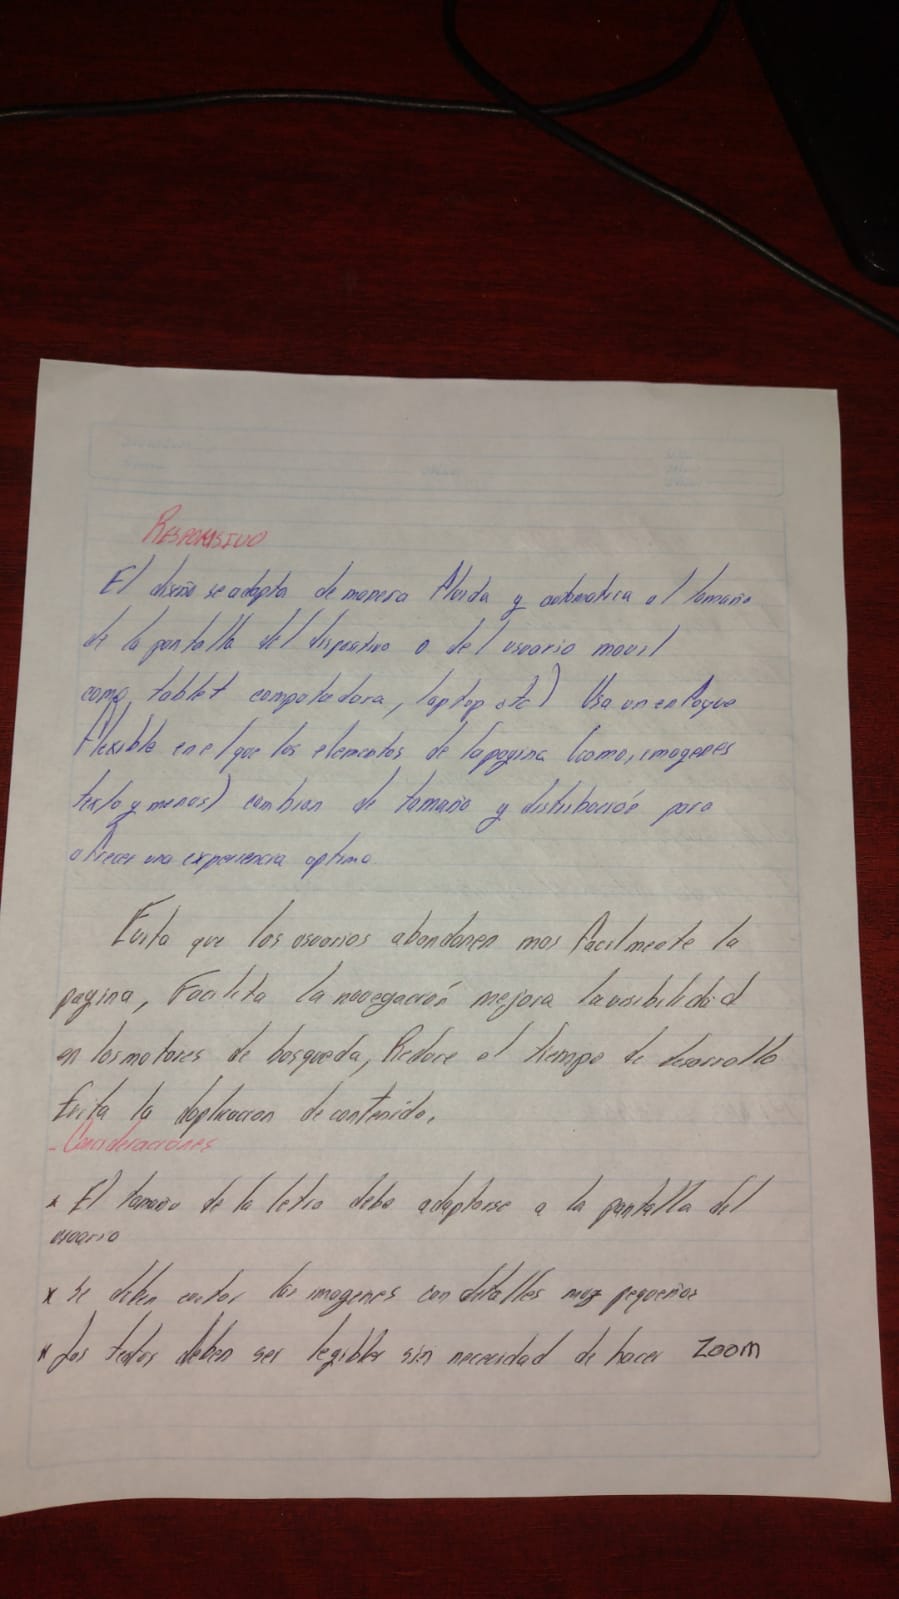 RESPONSIVO
El diseño se adapta de manera fluida y automatica al tamaño
de la pantalla del dispositivo o del usuario movil
como, tablet computadora, laptop etc) Usa un enfoque
flexible en el que los elementos de la pagina (como, imagenes
texto y menus) cambian de tamaño y distribución para
ofrecer una experiencia optima
Evita que los usuarios abandonen mas facilmente la
pagina, Facilita la navegación mejora la visibilidad
en los motores de busqueda, Reduce el tiempo de desarrollo
Evita la duplicacion de contenido.
- Consideraciones
* El tamaño de la letra debe adaptarse a la pantalla del
usuario
x Se deben evitar las imagenes con detalles muy pequeños
* Los textos deben ser legibles sin necesidad de hacer Zoom